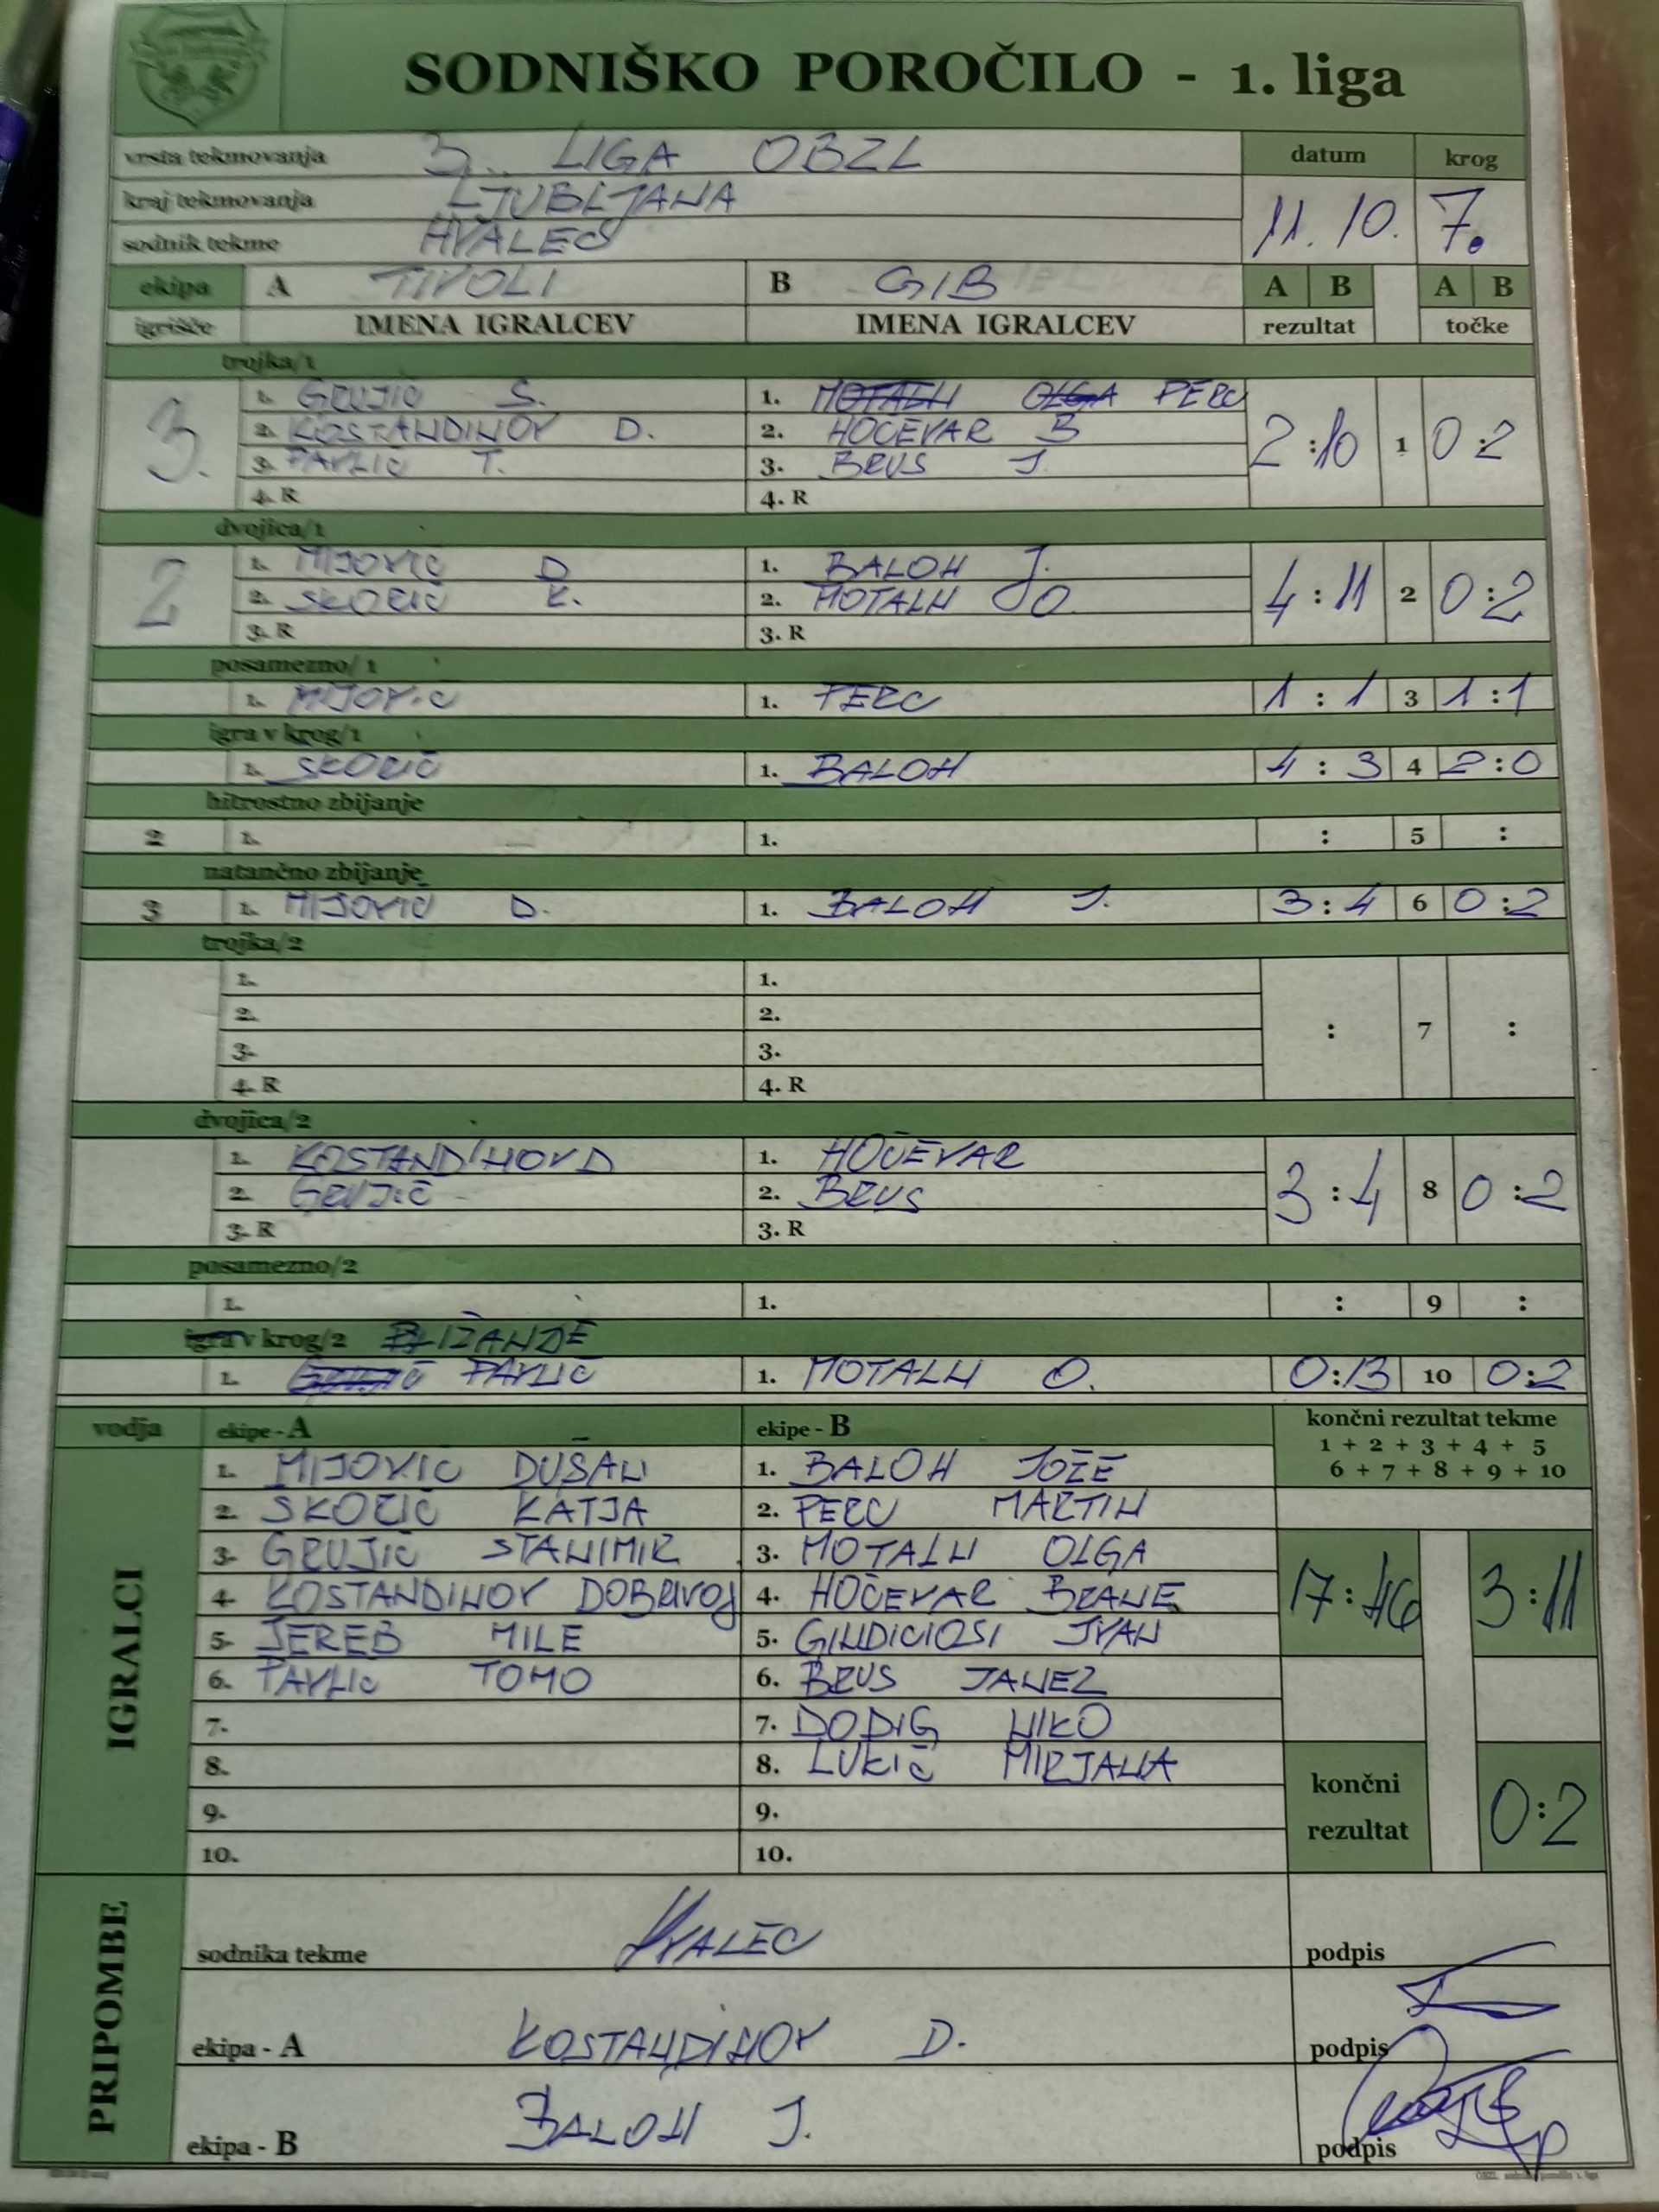 SODNIŠKO POROČILO - 1. liga
vrsta tekmovanja 3. LIGA OBZL datum krog
kraj tekmovanja LJUBLJANA 11. 10. 7.
sodnik tekme HVALEC
ekipa A TIVOLI B GIB A B A B
igrišče IMENA IGRALCEV IMENA IGRALCEV rezultat točke
trojka/1
3. 1. GRUJIČ S. 1. MOTALN OLGA PERC 2:10 1 0:2
2. KOSTANDINOV D. 2. HOČEVAR B
3. PAVLIČ T. 3. BRUS J.
4. R 4. R
dvojica/1
2 1. MIJOVIČ D 1. BALOH J. 4:11 2 0:2
2. SKOČIČ K. 2. MOTALN O
3. R 3. R
posamezno/1
1. MIJOVIČ 1. PERC 1:1 3 1:1
igra v krog/1
1. SKOČIČ 1. BALOH 4:3 4 2:0
hitrostno zbijanje
2 1. 1. : 5 :
natančno zbijanje
3 1. MIJOVIČ D. 1. BALOH J. 3:4 6 0:2
trojka/2
1. 1.
2. 2.
3. 3. : 7 :
4. R 4. R
dvojica/2
1. KOSTANDINOV D 1. HOČEVAR 3:4 8 0:2
2. GRUJIČ 2. BRUS
3. R 3. R
posamezno/2
1. 1. : 9 :
igra v krog/2 BLIŽANJE
1. PAVLIČ 1. MOTALN O. 0:13 10 0:2
vodja ekipe - A ekipe - B končni rezultat tekme
1 + 2 + 3 + 4 + 5
6 + 7 + 8 + 9 + 10
IGRALCI
1. MIJOVIČ DUŠAN 1. BALOH JOŽE
2. SKOČIČ KATJA 2. PERC MARTIN
3. GRUJIČ STANIMIR 3. MOTALN OLGA
4. KOSTANDINOV DOBRIVOJ 4. HOČEVAR BRANE 17:46 3:11
5. JEREB MILE 5. GINDICIOSI IVAN
6. PAVLIČ TOMO 6. BRUS JANEZ
7. 7. DODIG NIKO
8. 8. LUKIČ MIRJANA končni
9. 9. rezultat 0:2
10. 10.
PRIPOMBE
sodnika tekme HVALEC podpis
ekipa - A KOSTANDINOV D. podpis
ekipa - B BALOH J. podpis